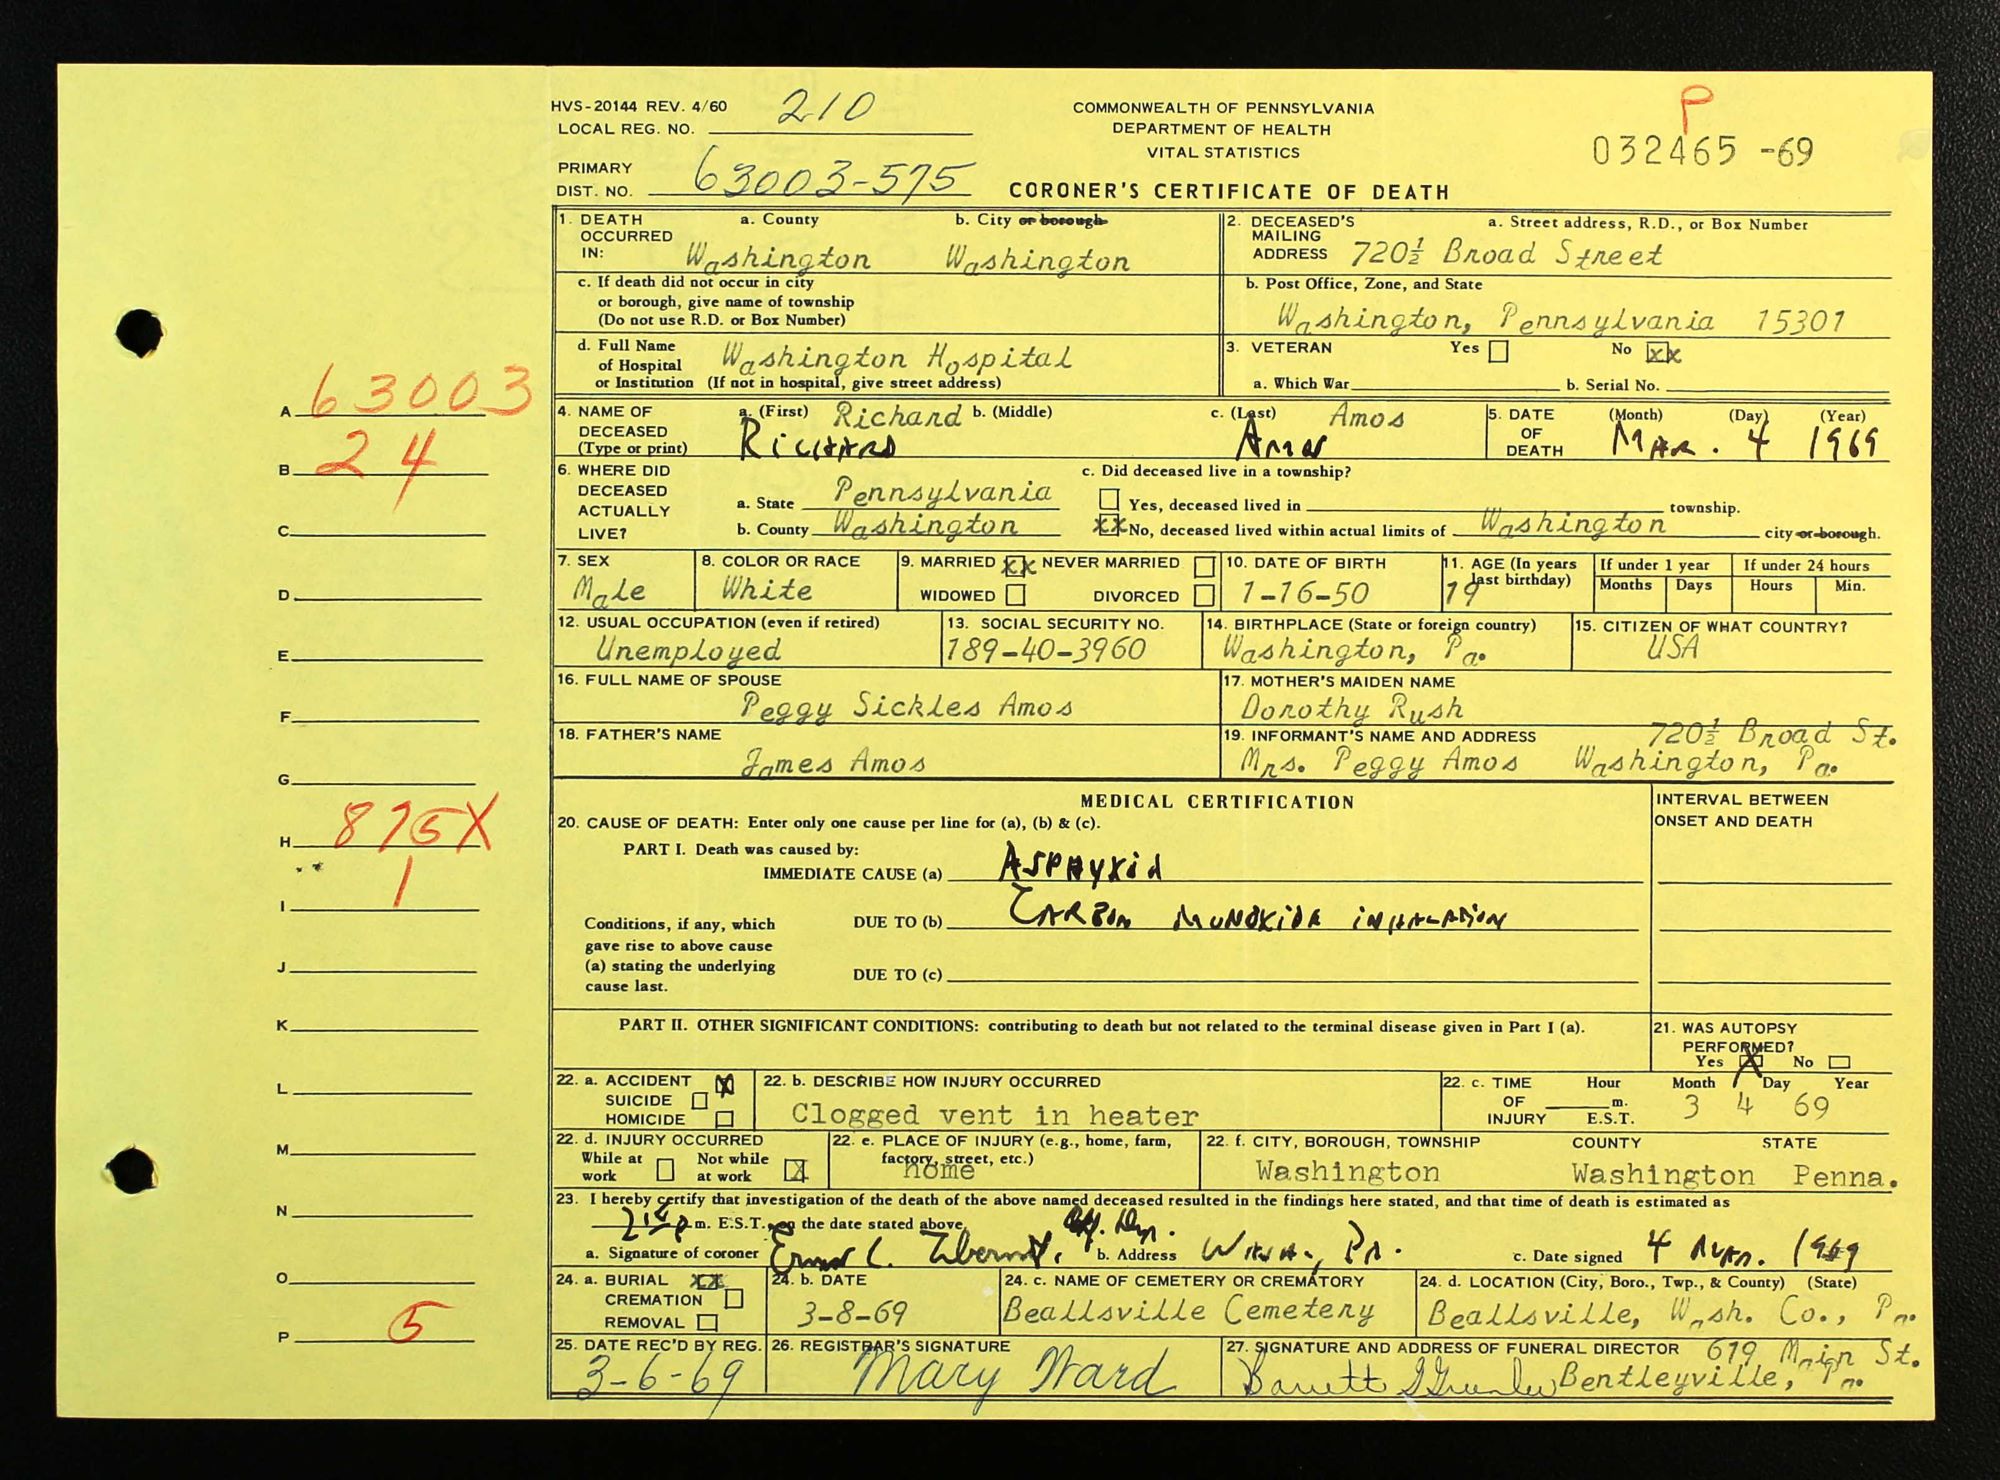 HVS-20144 REV. 4/60
LOCAL REG. NO. 210
COMMONWEALTH OF PENNSYLVANIA
DEPARTMENT OF HEALTH
VITAL STATISTICS
P
032465 -69
PRIMARY
DIST. NO. 63003-575
CORONER'S CERTIFICATE OF DEATH
1. DEATH OCCURRED IN: a. County Washington b. City or borough Washington
2. DECEASED'S MAILING ADDRESS a. Street address, R.D., or Box Number
720½ Broad Street
c. If death did not occur in city
or borough, give name of township
(Do not use R.D. or Box Number)
b. Post Office, Zone, and State
Washington, Pennsylvania 15301
d. Full Name
of Hospital Washington Hospital
or Institution (If not in hospital, give street address)
3. VETERAN Yes No xx
a. Which War b. Serial No.
4. NAME OF DECEASED (Type or print) a. (First) Richard b. (Middle) c. (Last) Amos
RICHARD Amos
5. DATE OF DEATH (Month) (Day) (Year)
MAR. 4 1969
6. WHERE DID DECEASED ACTUALLY LIVE?
a. State Pennsylvania
b. County Washington
c. Did deceased live in a township?
Yes, deceased lived in township.
xx No, deceased lived within actual limits of Washington city or borough.
7. SEX
Male
8. COLOR OR RACE
White
9. MARRIED xx NEVER MARRIED
WIDOWED DIVORCED
10. DATE OF BIRTH
1-16-50
11. AGE (In years last birthday)
19
If under 1 year
Months Days
If under 24 hours
Hours Min.
12. USUAL OCCUPATION (even if retired)
Unemployed
13. SOCIAL SECURITY NO.
189-40-3960
14. BIRTHPLACE (State or foreign country)
Washington, Pa.
15. CITIZEN OF WHAT COUNTRY?
USA
16. FULL NAME OF SPOUSE
Peggy Sickles Amos
17. MOTHER'S MAIDEN NAME
Dorothy Rush
18. FATHER'S NAME
James Amos
19. INFORMANT'S NAME AND ADDRESS 720½ Broad St.
Mrs. Peggy Amos Washington, Pa.
MEDICAL CERTIFICATION
INTERVAL BETWEEN
ONSET AND DEATH
20. CAUSE OF DEATH: Enter only one cause per line for (a), (b) & (c).
PART I. Death was caused by:
IMMEDIATE CAUSE (a) ASPHYXIA
Conditions, if any, which
gave rise to above cause
(a) stating the underlying
cause last.
DUE TO (b) CARBON MONOXIDE INHALATION
DUE TO (c)
PART II. OTHER SIGNIFICANT CONDITIONS: contributing to death but not related to the terminal disease given in Part I (a).
21. WAS AUTOPSY
PERFORMED?
Yes X No
22. a. ACCIDENT X
SUICIDE
HOMICIDE
22. b. DESCRIBE HOW INJURY OCCURRED
Clogged vent in heater
22. c. TIME OF INJURY Hour m. E.S.T. Month Day Year
3 4 69
22. d. INJURY OCCURRED
While at work Not while at work X
22. e. PLACE OF INJURY (e.g., home, farm,
factory, street, etc.)
home
22. f. CITY, BOROUGH, TOWNSHIP COUNTY STATE
Washington Washington Penna.
23. I hereby certify that investigation of the death of the above named deceased resulted in the findings here stated, and that time of death is estimated as
m. E.S.T. on the date stated above.
a. Signature of coroner b. Address WASH., PA. c. Date signed 4 MAR. 1969
24. a. BURIAL xx
CREMATION
REMOVAL
24. b. DATE
3-8-69
24. c. NAME OF CEMETERY OR CREMATORY
Beallsville Cemetery
24. d. LOCATION (City, Boro., Twp., & County) (State)
Beallsville, Wash. Co., Pa.
25. DATE REC'D BY REG.
3-6-69
26. REGISTRAR'S SIGNATURE
Mary Ward
27. SIGNATURE AND ADDRESS OF FUNERAL DIRECTOR 619 Main St.
Bentleyville, Pa.
A 63003
B 24
C
D
E
F
G
H 875X
I 1
J
K
L
M
N
O
P 5